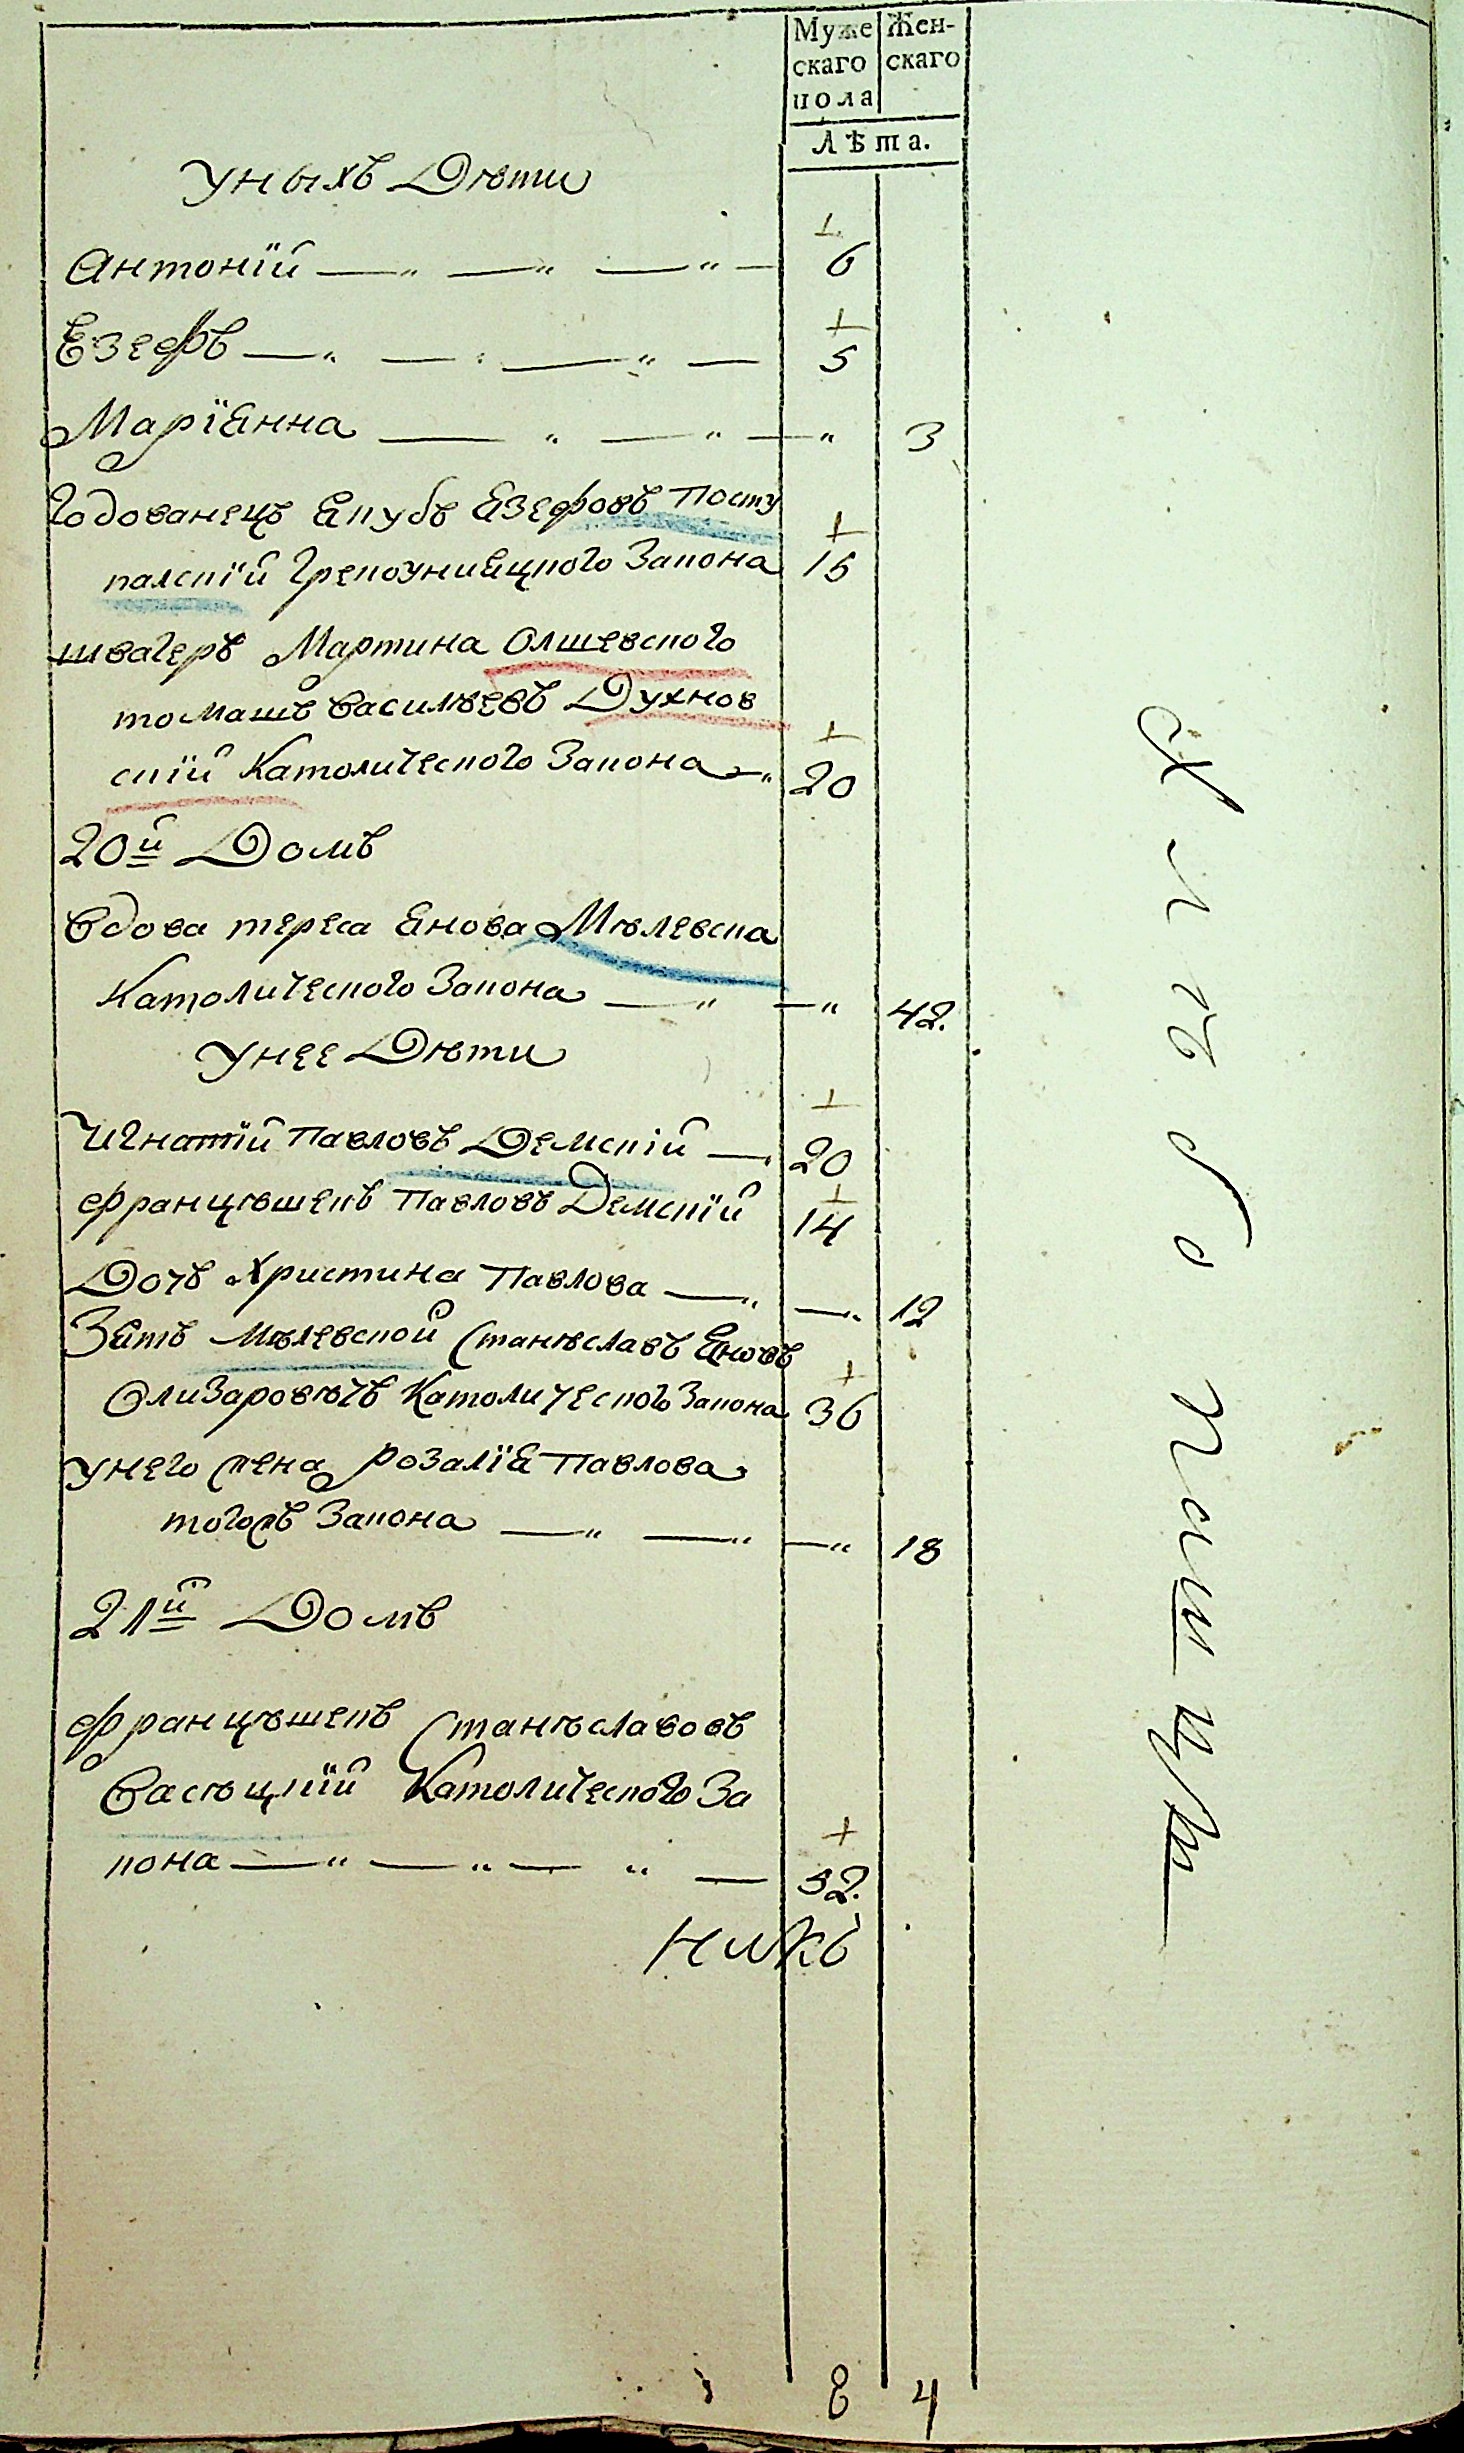 Муже Жен-
скаго скаго
пола
Лѣта.
У ныхъ Дѣти
Антоній 6
Езефъ 5
Маріянна 3
Годованецъ Якубъ Язефовъ Посту
палскій Грекоунияцкого Закона 15
швагеръ Мартина Олшевского
томашъ василѣевъ Духнов
скій Католического Закона 20
20й Домъ
Вдова тереса Янова Мѣлевска
Католического Закона 42.
У нее Дѣти
Игнатій Павловъ Демскій 20
Францѣшекъ Павловъ Демскій 14
Дочъ Христина Павлова 12
Зять Мѣлевской Станѣславъ Яновъ
Олизаровѣчъ Католического Закона 36
У него жена Розалія Павлова
тогожъ Закона 18
21й Домъ
Францѣшекъ Станѣславовъ
Васѣцкій Католического За
кона 32.
8 4